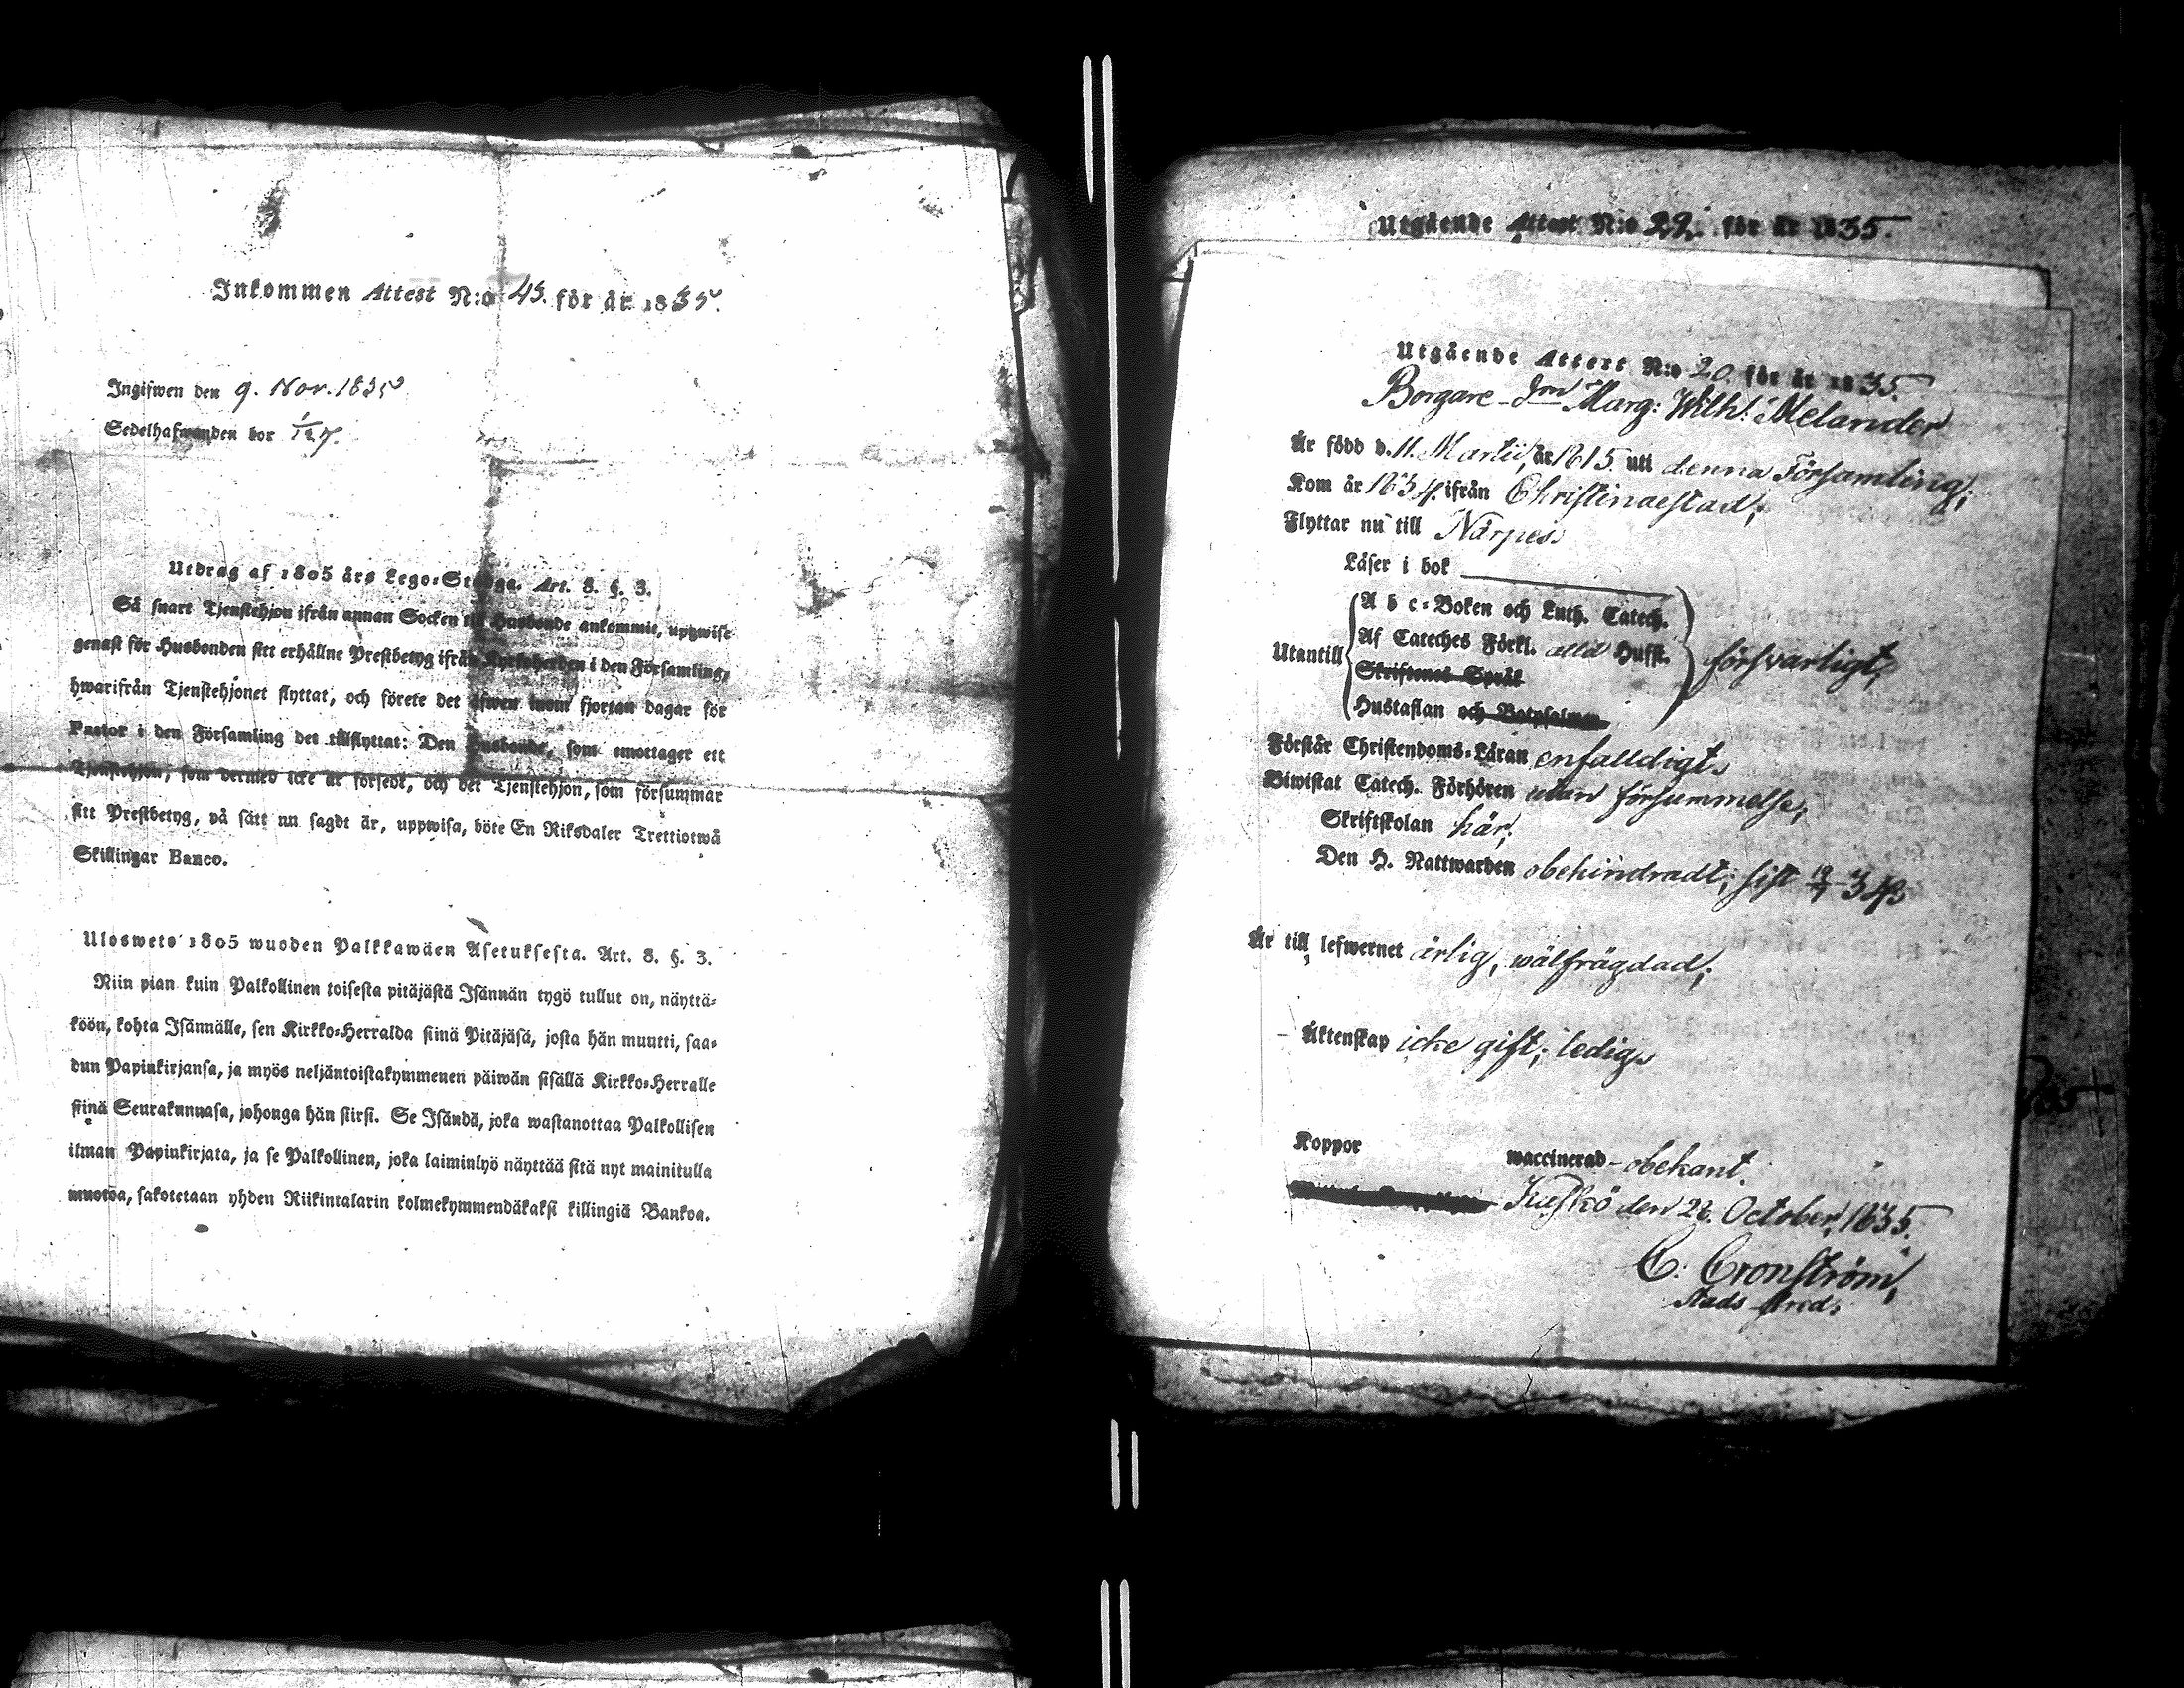 Inkommen Attest N:o 45. för år 1835.
Ingifwen den 9. Nov. 1835
Sedelhafwanden bor
Utdrag af 1805 års Lego-Stadga. Art. 8. §. 3.
Så snart Tjenstehjon ifrån annan Socken till Husbonde ankommit, uppwise
genast för Husbonden sitt erhållne Prestbetyg ifrån Kyrkoherden i den Församling,
hwarifrån Tjenstehjonet flyttat, och förete det äfwen inom fjortan dagar för
Pastor i den Församling det tillflyttat: Den Husbonde, som emottager ett
Tjenstehjon, som dermed icke är försedt, och det Tjenstehjon, som försummar
sitt Prestbetyg, på sätt nu sagdt är, uppwisa, böte En Riksdaler Trettiotwå
Skillingar Banco.
Ulosweto 1805 wuoden Palkkawäen Asetuksesta. Art. 8. §. 3.
Niin pian kuin Palkollinen toisesta pitäjästä Isännän tygö tullut on, näyttä-
köön, kohta Isännälle, sen Kirkko-Herralda siinä Pitäjäsä, josta hän muutti, saa-
dun Papinkirjansa, ja myös neljäntoistakymmenen päiwän sisällä Kirkko-Herralle
siinä Seurakunnasa, johonga hän siirsi. Se Isändä, joka wastanottaa Palkollisen
ilman Papinkirjata, ja se Palkollinen, joka laiminlyö näyttää sitä nyt mainitulla
muotoa, sakotetaan yhden Riikintalarin kolmekymmendäkaksi killingiä Bankoa.
Utgående Attest N:o 22. för år 1835.
Utgående Attest N:o 20. för år 1835.
Borgare Marg: Wilh: Melander
Är född d. 11. Martii, år 1815. uti denna Församling;
Kom år 1834. ifrån Christinaestad;
Flyttar nu till Närpes.
Läser i bok
Utantill
A b c-Boken och Luth. Catech.
Af Cateches Förkl. alla Hufst.
Skriftenes Språk
Hustaflan och Botpsalmen
försvarligt;
Förstår Christendoms-Läran enfalldigt.
Biwistat Catech. Förhören utan försummelse;
Skriftskolan här;
Den H. Nattwarden obehindradt; sist
Är till lefwernet ärlig, wälfrägdad;
Äktenskap icke gift; ledig.
Koppor waccinerad - obekant.
Kaskö den October, 1835.
C. Cronström,